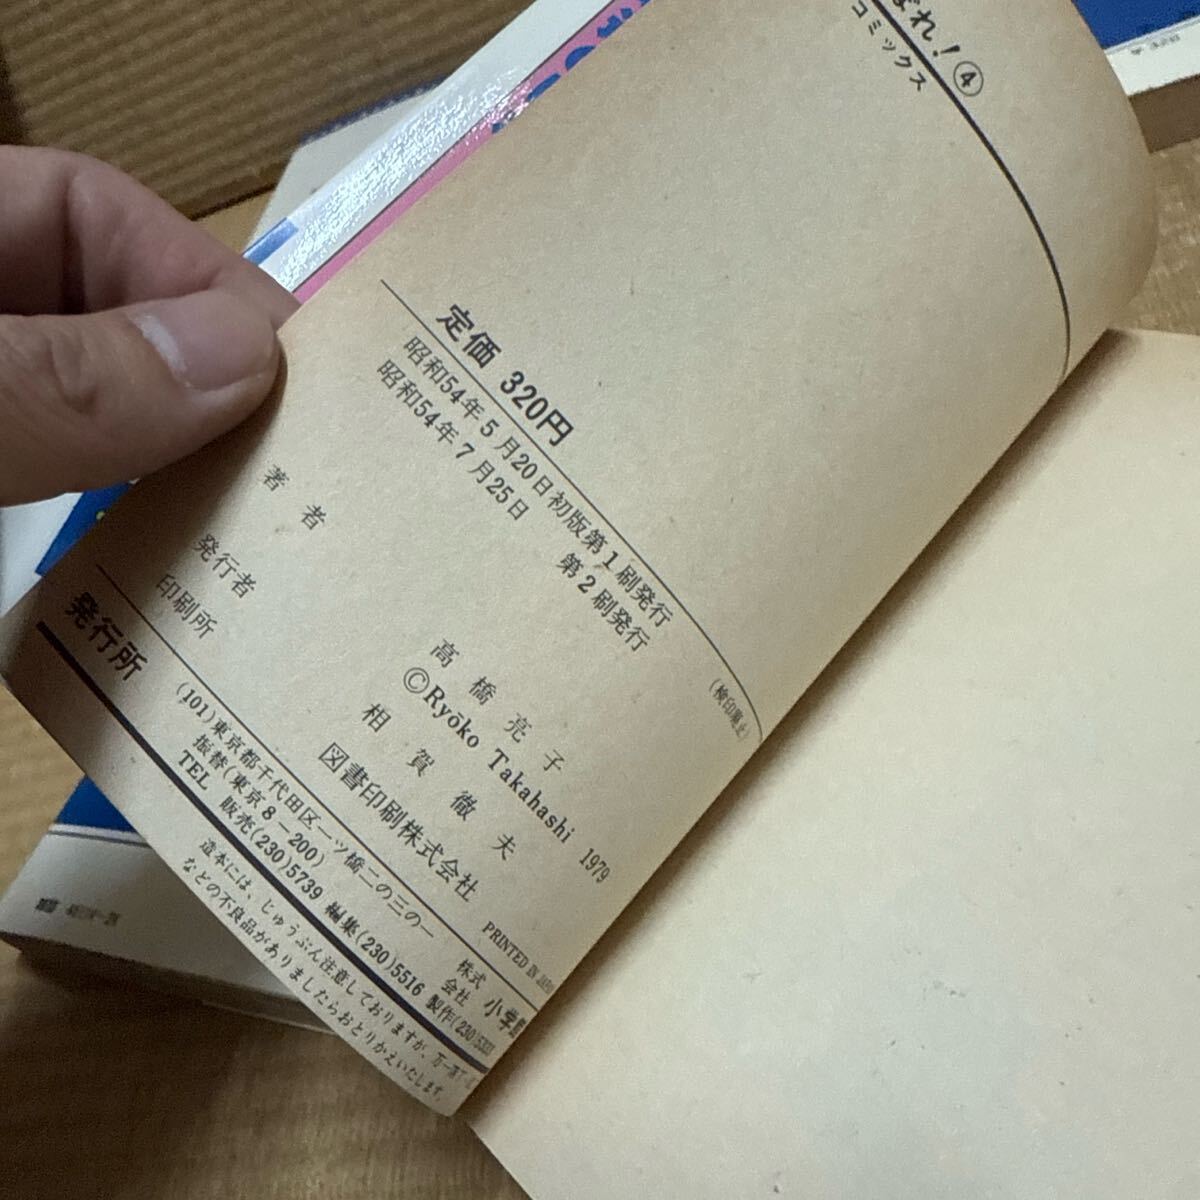 ばれ!④
コミックス
定価 320円
昭和54年5月20日初版第1刷発行
昭和54年7月25日 第2刷発行
(検印廃止)
著者 高橋亮子
©Ryōko Takahashi 1979
発行者 相賀徹夫
印刷所 図書印刷株式会社
PRINTED IN
発行所 株式会社 小学
(101)東京都千代田区一ツ橋二の三の一
振替(東京8-200)
TEL 販売(230)5739 編集(230)5516 製作(230)5333
造本には、じゅうぶん注意しておりますが、万一
などの不良品がありましたらおとりかえいたします。